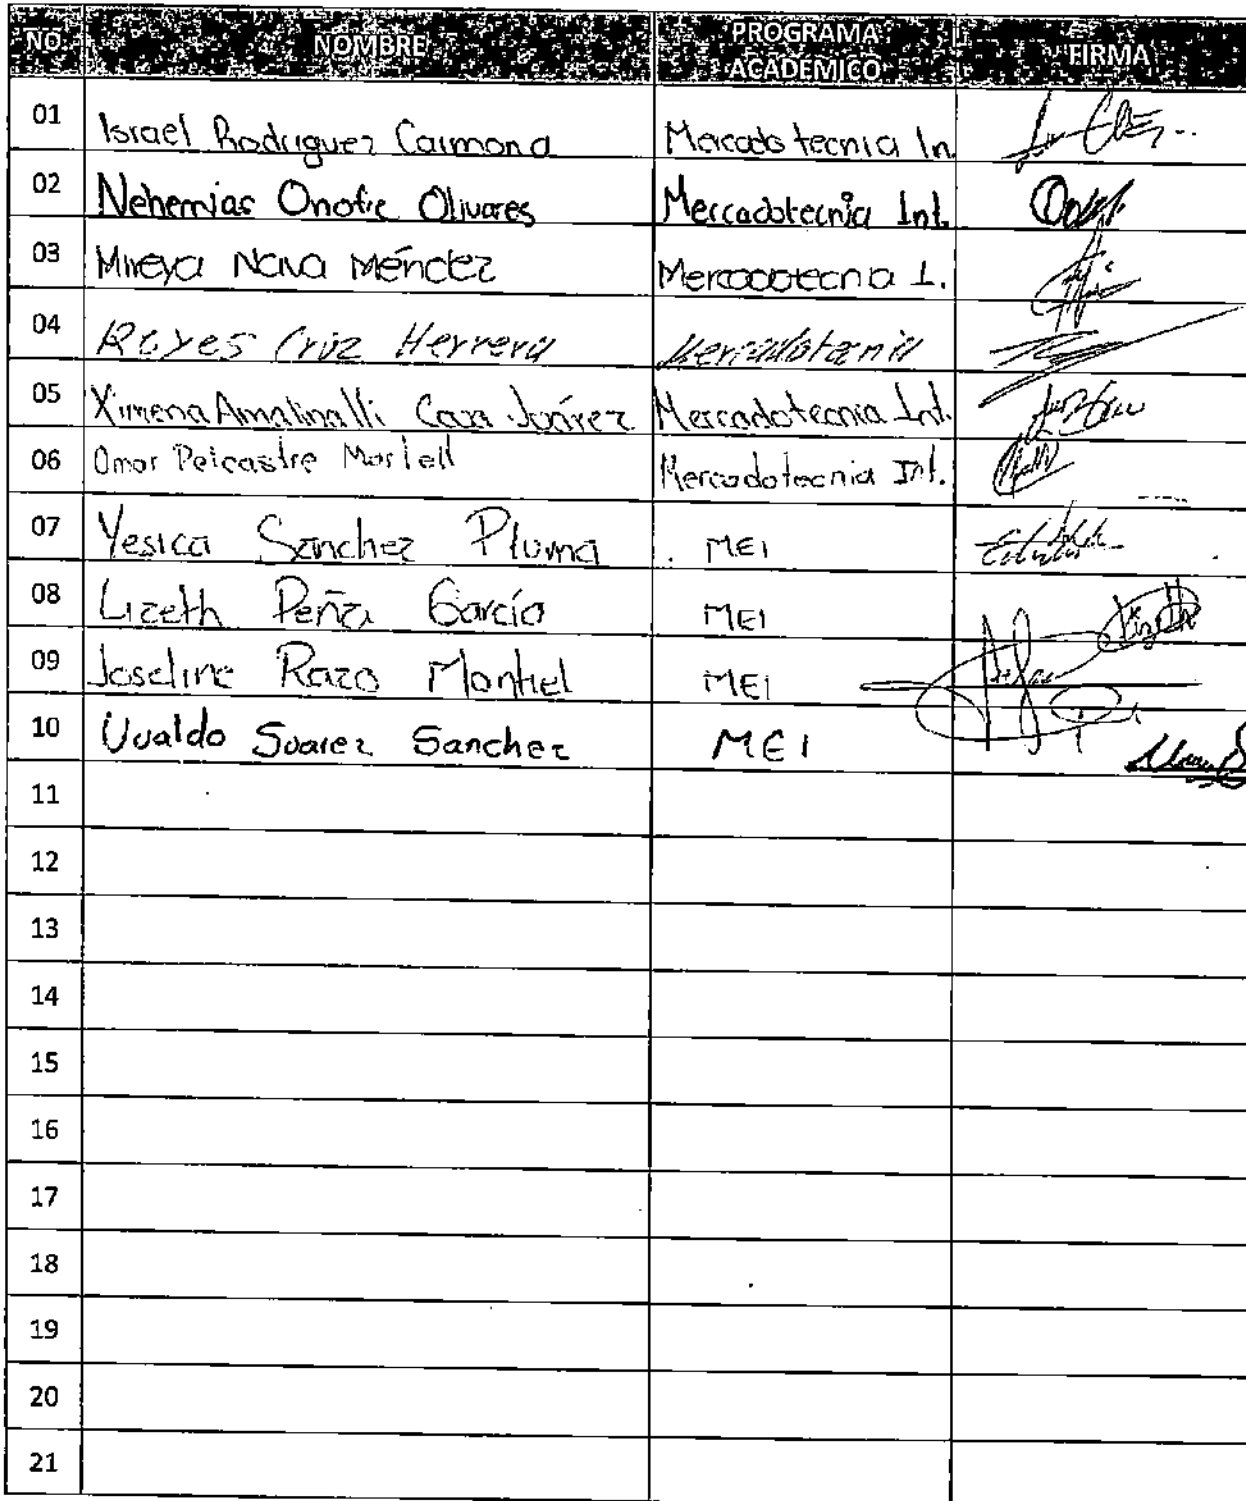 NO. NOMBRE PROGRAMA ACADEMICO FIRMA
01 Israel Rodriguez Carmona Mercadotecnia In.
02 Nehemias Onofre Olivares Mercadotecnia Int.
03 Mireya Nava Méndez Mercadotecnia I.
04 Reyes Cruz Herrera Mercadotecnia
05 Ximena Amalinalli Juárez Mercadotecnia Int.
06 Omar Pelcastre Martell Mercadotecnia Int.
07 Yesica Sanchez Pluma MEI
08 Lizeth Peña García MEI
09 Joseline Razo Montiel MEI
10 Uvaldo Suarez Sanchez MEI
11
12
13
14
15
16
17
18
19
20
21